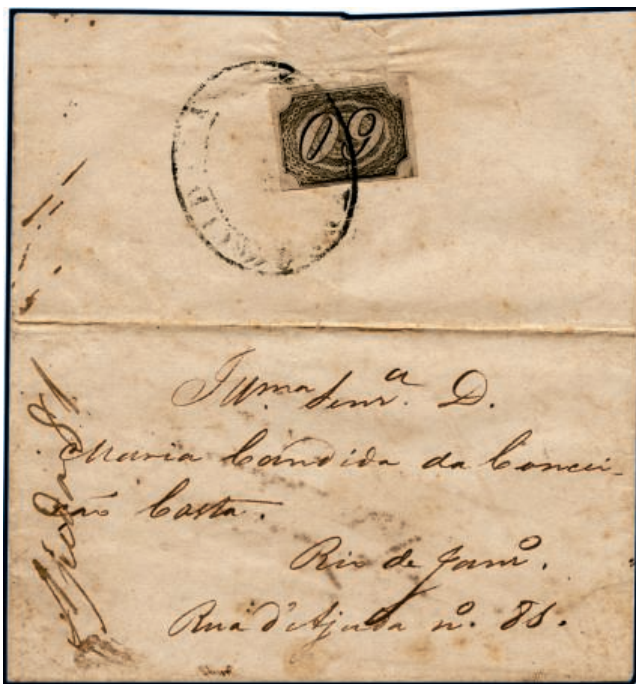 60
Illma. Senra. D.
Maria Candida da Concei-
ção Costa.
Rio de Janro.
Rua d'Ajuda nº. 81.